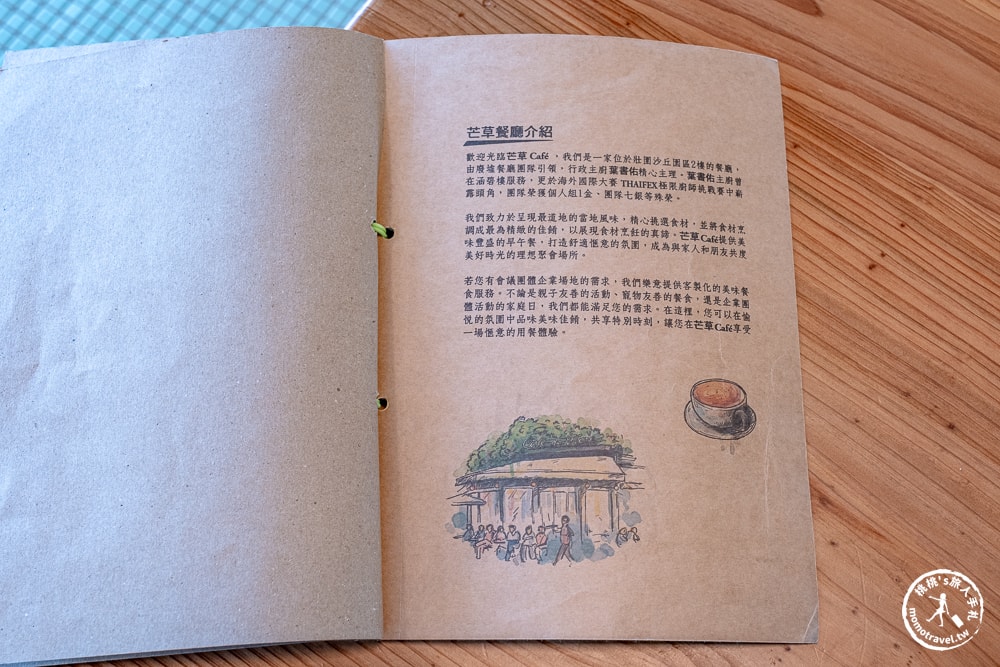 芒草餐廳介紹
歡迎光臨芒草 Café ，我們是一家位於壯圍沙丘園區2樓的餐廳，
由廢墟餐廳團隊引領，行政主廚葉書佑精心主理、葉書佑主廚曾
在涵碧樓服務，更於海外國際大賽 THAIFEX極限廚師挑戰賽中嶄
露頭角，團隊榮獲個人組1金、團隊七銀等殊榮。
我們致力於呈現最道地的當地風味，精心挑選食材，並將食材烹
調成最為精緻的佳餚，以展現食材烹飪的真諦。芒草Café提供美
味豐盛的早午餐，打造舒適愜意的氛圍，成為與家人和朋友共度
美好時光的理想聚會場所。
若您有會議團體企業場地的需求，我們樂意提供客製化的美味餐
食服務。不論是親子友善的活動、寵物友善的餐食，還是企業團
體活動的家庭日，我們都能滿足您的需求。在這裡，您可以在愉
悅的氛圍中品味美味佳餚，共享特別時刻，讓您在芒草Café享受
一場愜意的用餐體驗。
桃桃's旅人手札
momotravel.tw